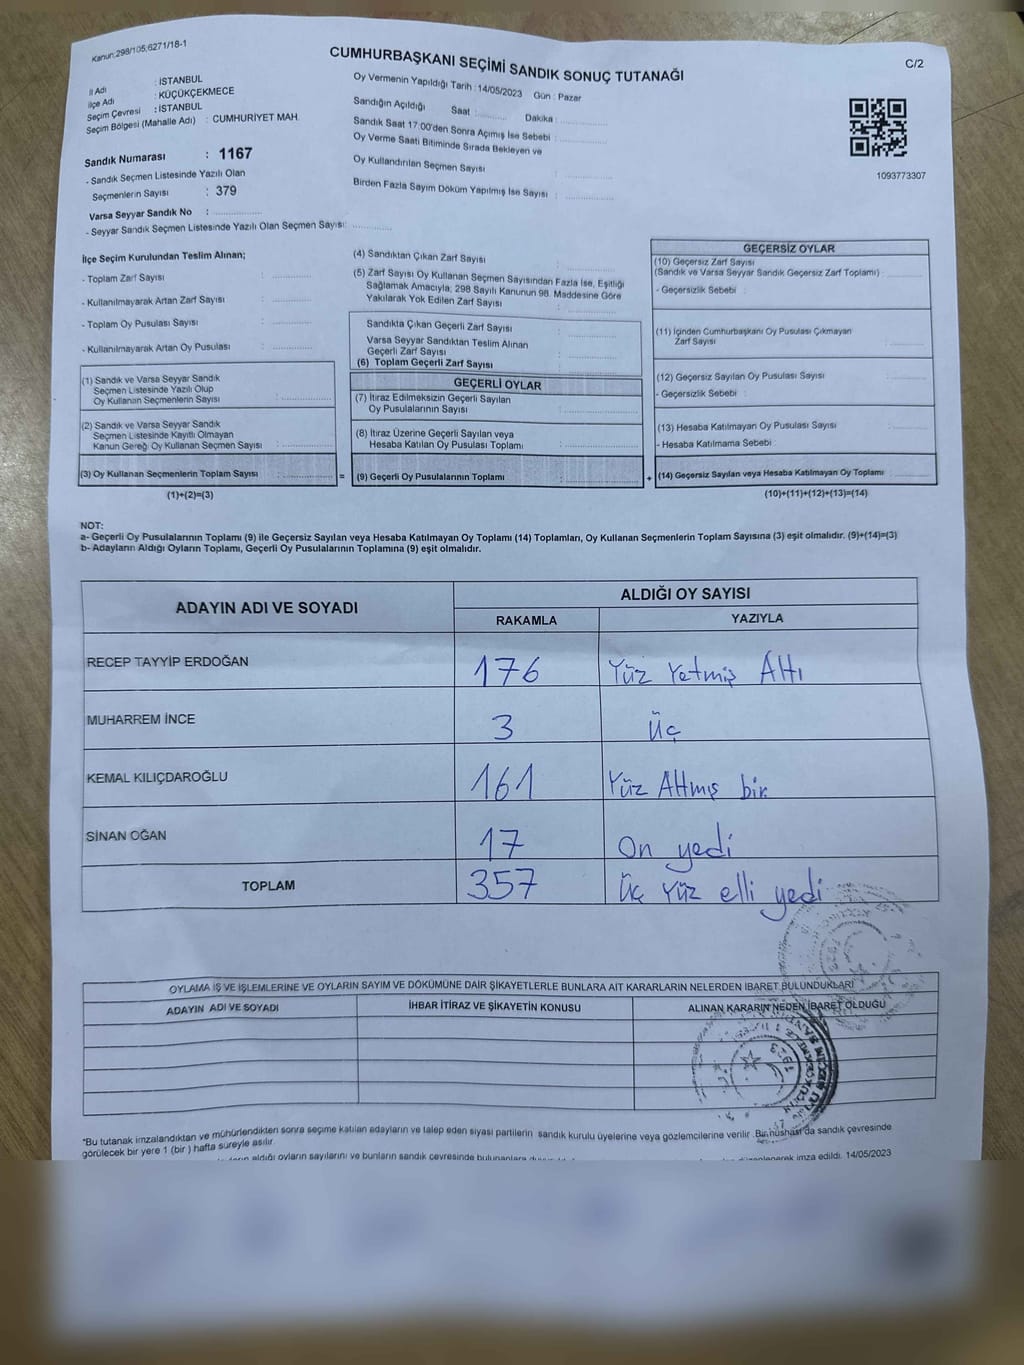 Kanun:298/105;6271/18-1
CUMHURBAŞKANI SEÇİMİ SANDIK SONUÇ TUTANAĞI
C/2
İl Adı : İSTANBUL
İlçe Adı : KÜÇÜKÇEKMECE
Seçim Çevresi : İSTANBUL
Seçim Bölgesi (Mahalle Adı) : CUMHURİYET MAH.
Sandık Numarası : 1167
- Sandık Seçmen Listesinde Yazılı Olan
Seçmenlerin Sayısı : 379
Varsa Seyyar Sandık No :
- Seyyar Sandık Seçmen Listesinde Yazılı Olan Seçmen Sayısı:
Oy Vermenin Yapıldığı Tarih : 14/05/2023 Gün : Pazar
Sandığın Açıldığı Saat : Dakika :
Sandık Saat 17:00'den Sonra Açımış İse Sebebi :
Oy Verme Saati Bitiminde Sırada Bekleyen ve
Oy Kullandırılan Seçmen Sayısı :
Birden Fazla Sayım Döküm Yapılmış İse Sayısı :
1093773307
İlçe Seçim Kurulundan Teslim Alınan;
- Toplam Zarf Sayısı :
- Kullanılmayarak Artan Zarf Sayısı :
- Toplam Oy Pusulası Sayısı :
- Kullanılmayarak Artan Oy Pusulası :
(1) Sandık ve Varsa Seyyar Sandık
Seçmen Listesinde Yazılı Olup
Oy Kullanan Seçmenlerin Sayısı :
(2) Sandık ve Varsa Seyyar Sandık
Seçmen Listesinde Kayıtlı Olmayan
Kanun Gereği Oy Kullanan Seçmen Sayısı :
(3) Oy Kullanan Seçmenlerin Toplam Sayısı :
(1)+(2)=(3)
(4) Sandıktan Çıkan Zarf Sayısı :
(5) Zarf Sayısı Oy Kullanan Seçmen Sayısından Fazla İse, Eşitliği
Sağlamak Amacıyla; 298 Sayılı Kanunun 98. Maddesine Göre
Yakılarak Yok Edilen Zarf Sayısı :
Sandıkta Çıkan Geçerli Zarf Sayısı :
Varsa Seyyar Sandıktan Teslim Alınan
Geçerli Zarf Sayısı :
(6) Toplam Geçerli Zarf Sayısı :
GEÇERLİ OYLAR
(7) İtiraz Edilmeksizin Geçerli Sayılan
Oy Pusulalarının Sayısı :
(8) İtiraz Üzerine Geçerli Sayılan veya
Hesaba Katılan Oy Pusulası Toplamı :
= (9) Geçerli Oy Pusulalarının Toplamı : +
GEÇERSİZ OYLAR
(10) Geçersiz Zarf Sayısı
(Sandık ve Varsa Seyyar Sandık Geçersiz Zarf Toplamı) :
- Geçersizlik Sebebi :
(11) İçinden Cumhurbaşkanı Oy Pusulası Çıkmayan
Zarf Sayısı :
(12) Geçersiz Sayılan Oy Pusulası Sayısı :
- Geçersizlik Sebebi :
(13) Hesaba Katılmayan Oy Pusulası Sayısı :
- Hesaba Katılmama Sebebi :
(14) Geçersiz Sayılan veya Hesaba Katılmayan Oy Toplamı :
(10)+(11)+(12)+(13)=(14)
NOT:
a- Geçerli Oy Pusulalarının Toplamı (9) ile Geçersiz Sayılan veya Hesaba Katılmayan Oy Toplamı (14) Toplamları, Oy Kullanan Seçmenlerin Toplam Sayısına (3) eşit olmalıdır. (9)+(14)=(3)
b- Adayların Aldığı Oyların Toplamı, Geçerli Oy Pusulalarının Toplamına (9) eşit olmalıdır.
ADAYIN ADI VE SOYADI
ALDIĞI OY SAYISI
RAKAMLA YAZIYLA
RECEP TAYYİP ERDOĞAN 176 Yüz Yetmiş Altı
MUHARREM İNCE 3 Üç
KEMAL KILIÇDAROĞLU 161 Yüz Altmış bir
SİNAN OĞAN 17 On yedi
TOPLAM 357 Üç Yüz elli yedi
OYLAMA İŞ VE İŞLEMLERİNE VE OYLARIN SAYIM VE DÖKÜMÜNE DAİR ŞİKAYETLERLE BUNLARA AİT KARARLARIN NELERDEN İBARET BULUNDUKLARI
ADAYIN ADI VE SOYADI İHBAR İTİRAZ VE ŞİKAYETİN KONUSU ALINAN KARARIN NEDEN İBARET OLDUĞU
1923
*Bu tutanak imzalandıktan ve mühürlendikten sonra seçime katılan adayların ve talep eden siyasi partilerin sandık kurulu üyelerine veya gözlemcilerine verilir. Bir nüshası da sandık çevresinde
görülecek bir yere 1 (bir) hafta süreyle asılır.
aldığı oyların sayılarını ve bunların sandık çevresinde imza edildi. 14/05/2023